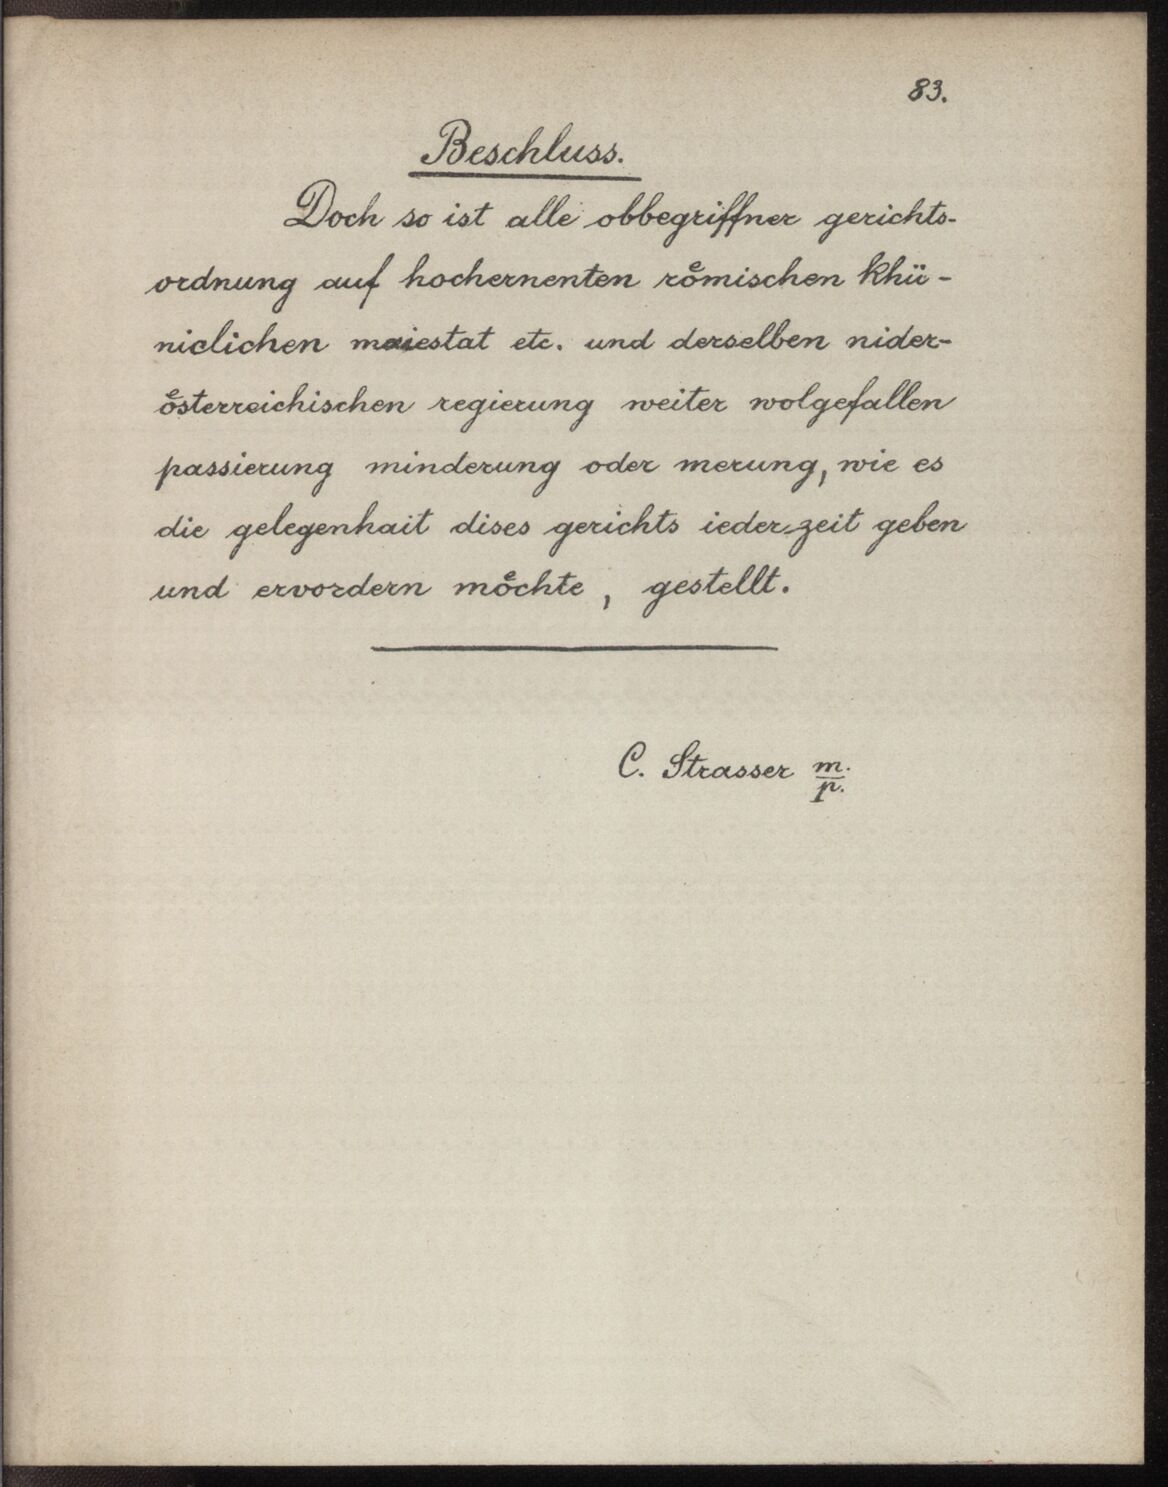 83.
Beschluss.
Doch so ist alle obbegriffner gerichts-
ordnung auf hochernenten roͤmischen khü-
niclichen maiestat etc. und derselben nider-
oͤsterreichischen regierung weiter wolgefallen
passierung minderung oder merung, wie es
die gelegenhait dises gerichts iederzeit geben
und ervordern moͤchte, gestellt.
C. Strasser m.
p.